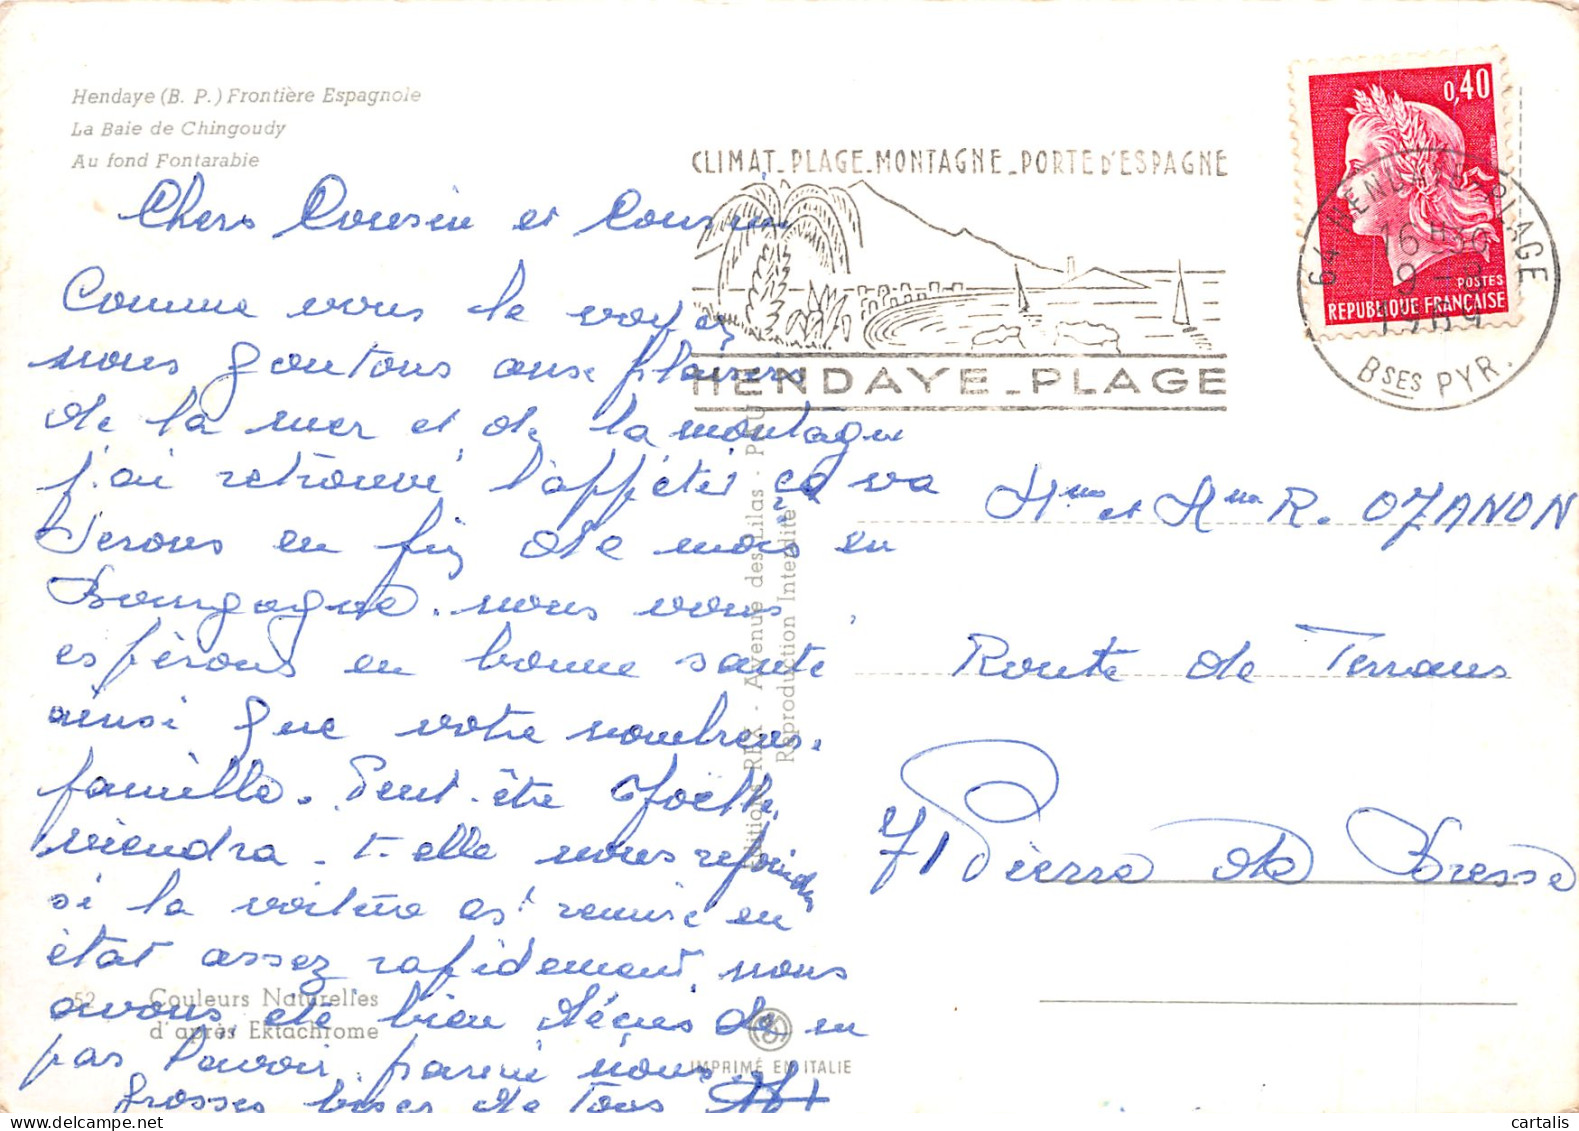 Hendaye (B. P.) Frontière Espagnole
La Baie de Chingoudy
Au fond Fontarabie
CLIMAT_PLAGE_MONTAGNE_PORTE D'ESPAGNE
HENDAYE_PLAGE
0,40
POSTES
REPUBLIQUE FRANÇAISE
64 HENDAYE-PLAGE
16 H30
9 - 9
1969
BSES PYR.
Chers Cousin et Cousine
Comme vous le voyez
nous goutons aux plaisirs
de la mer et de la montagne
j'ai retrouvé l'appétit ça va
Serons en fin de mois en
Bourgogne. nous vous
espérons en bonne santé
ainsi que votre nombreuse
famille. Peut-être Joëlle
viendra-t-elle nous rejoindre
si la voiture est remise en
état assez rapidement, nous
avons été bien déçus de
pas l'avoir parmi nous
Grosses bises de tous
Mme et R. OZANON
Route de Terrans
71 Pierre de Bresse
Editions REX - Avenue des Lilas - PAU
Reproduction Interdite
52 Couleurs Naturelles
d'après Ektachrome
IMPRIMÉ EN ITALIE
cartalis